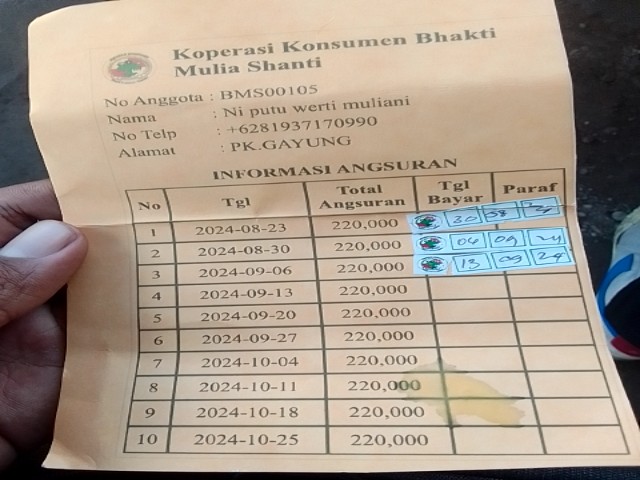 Koperasi Konsumen Bhakti
Mulia Shanti
No Anggota : BMS00105
Nama : Ni putu werti muliani
No Telp : +6281937170990
Alamat : PK.GAYUNG
INFORMASI ANGSURAN
No Tgl Total Angsuran Tgl Bayar Paraf
1 2024-08-23 220,000 30 08 24
2 2024-08-30 220,000 06 09 24
3 2024-09-06 220,000 13 09 24
4 2024-09-13 220,000
5 2024-09-20 220,000
6 2024-09-27 220,000
7 2024-10-04 220,000
8 2024-10-11 220,000
9 2024-10-18 220,000
10 2024-10-25 220,000